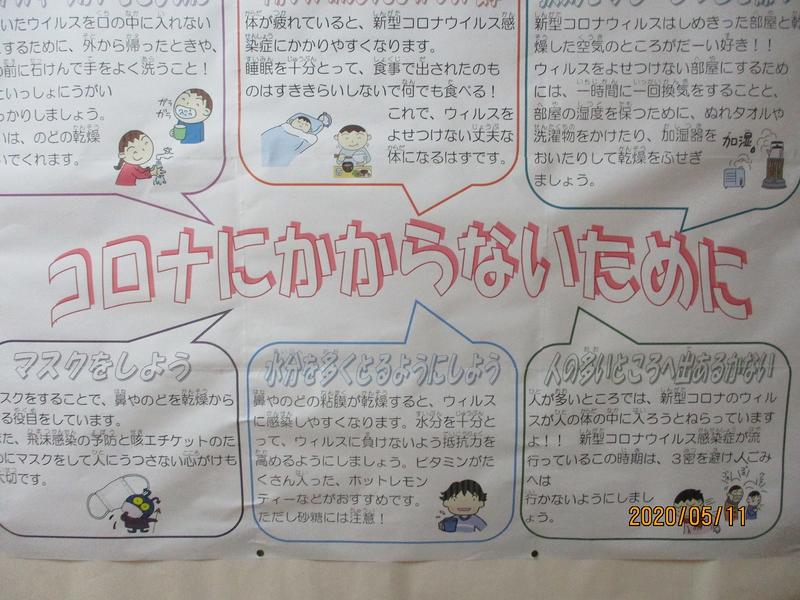 いたウイルスを口の中に入れない
するために、外から帰ったときや、
の前に石けんで手をよく洗うこと！
といっしょにうがい
っかりしましょう。
いは、のどの乾燥
いでくれます。
ガラガラ
体が疲れていると、新型コロナウイルス感
染症にかかりやすくなります。
睡眠を十分とって、食事で出されたのも
のはすききらいしないで何でも食べる！
これで、ウィルスを
よせつけない丈夫な
体になるはずです。
新型コロナウィルスはしめきった部屋と乾
燥した空気のところがだーい好き！！
ウィルスをよせつけない部屋にするため
には、一時間に一回換気をすることと、
部屋の湿度を保つために、ぬれタオルや
洗濯物をかけたり、加湿器を
おいたりして乾燥をふせぎ
ましょう。
加湿。
コロナにかからないために
マスクをしよう
スクをすることで、鼻やのどを乾燥から
る役目をしています。
また、飛沫感染の予防と咳エチケットのた
めにマスクをして人にうつさない心がけも
大切です。
水分を多くとるようにしよう
鼻やのどの粘膜が乾燥すると、ウィルス
に感染しやすくなります。水分を十分と
って、ウィルスに負けないよう抵抗力を
高めるようにしましょう。ビタミンがた
くさん入った、ホットレモン
ティーなどがおすすめです。
ただし砂糖には注意！
人の多いところへ出あるかない
人が多いところでは、新型コロナのウィル
スが人の体の中に入ろうとねらっています
よ！！　新型コロナウイルス感染症が流
行っているこの時期は、３密を避け人ごみ
へは
行かないようにしまし
ょう。
2020/05/11